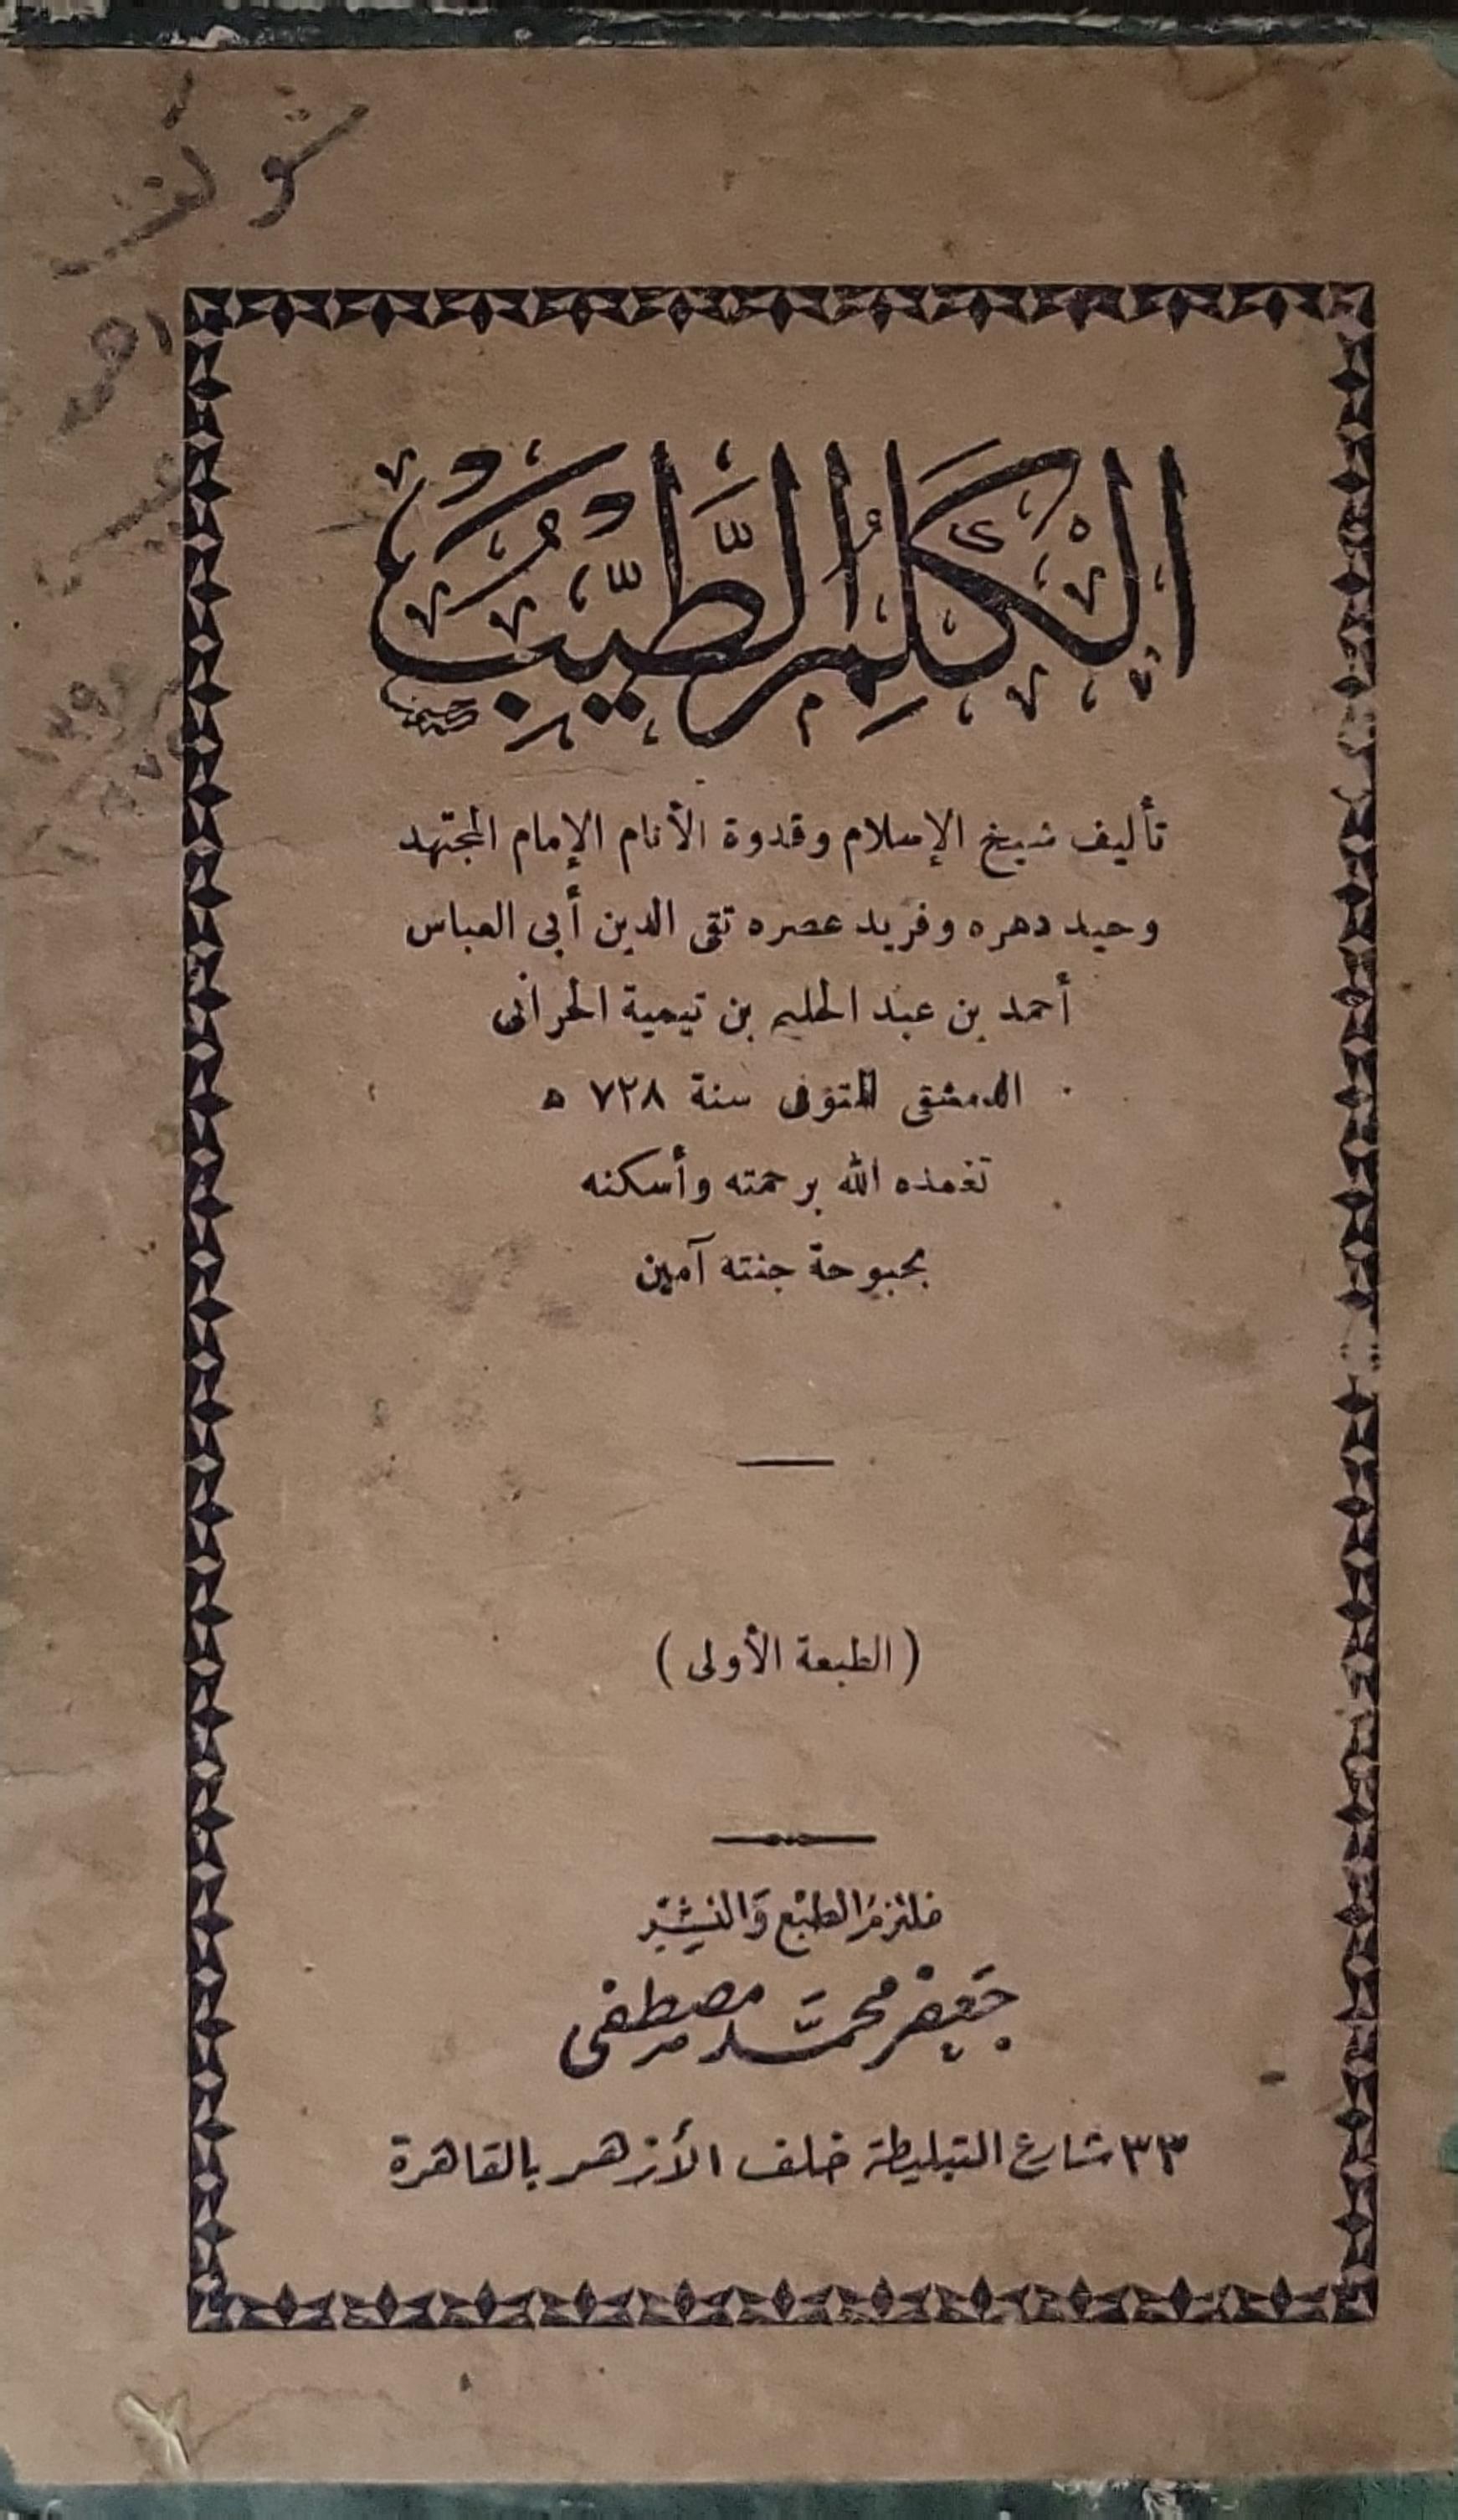 شوكت
أحمد
الْكَلِمُ الطَّيِّبُ
تأليف شيخ الإسلام وقدوة الأنام الإمام المجتهد
وحيد دهره وفريد عصره تقى الدين أبى العباس
أحمد بن عبد الحليم بن تيمية الحرانى
الدمشقى المتوفى سنة ٧٢٨ ه
تغمده الله برحمته وأسكنه
بحبوحة جنته آمين
(الطبعة الأولى)
ملتزم الطبع والنشر
جعفر محمد مصطفى
٣٣ شارع التبليطة خلف الأزهر بالقاهرة